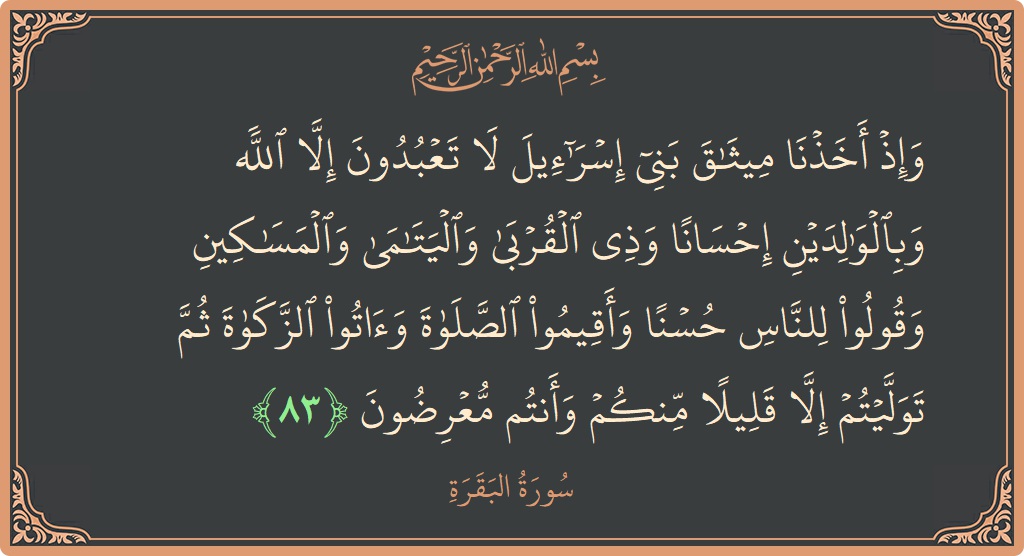 بِسْمِ اللهِ الرَّحْمٰنِ الرَّحِيْمِ
وَإِذۡ أَخَذۡنَا مِيثَٰقَ بَنِيٓ إِسۡرَٰٓءِيلَ لَا تَعۡبُدُونَ إِلَّا ٱللَّهَ
وَبِٱلۡوَٰلِدَيۡنِ إِحۡسَانًا وَذِي ٱلۡقُرۡبَىٰ وَٱلۡيَتَٰمَىٰ وَٱلۡمَسَٰكِينِ
وَقُولُواْ لِلنَّاسِ حُسۡنًا وَأَقِيمُواْ ٱلصَّلَوٰةَ وَءَاتُواْ ٱلزَّكَوٰةَ ثُمَّ
تَوَلَّيۡتُمۡ إِلَّا قَلِيلًا مِّنكُمۡ وَأَنتُم مُّعۡرِضُونَ ﴿٨٣﴾
سُورَةُ البَقَرَةِ